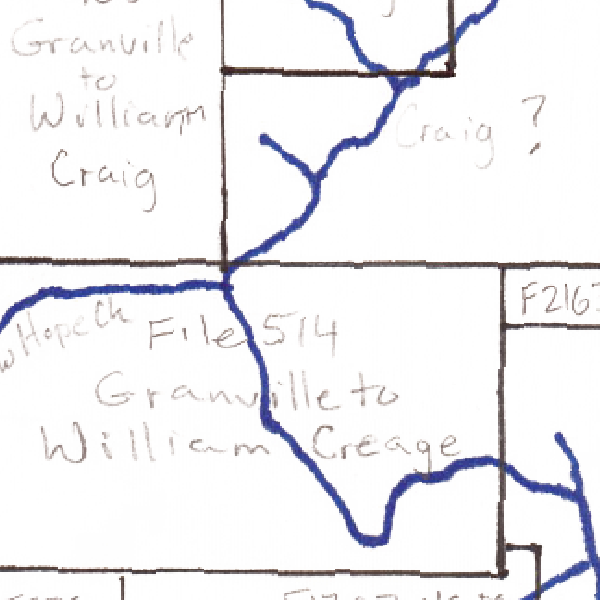 Granville
to
William
Craig
Craig ?
F2163
Hope Ck
File 514
Granville to
William Creage